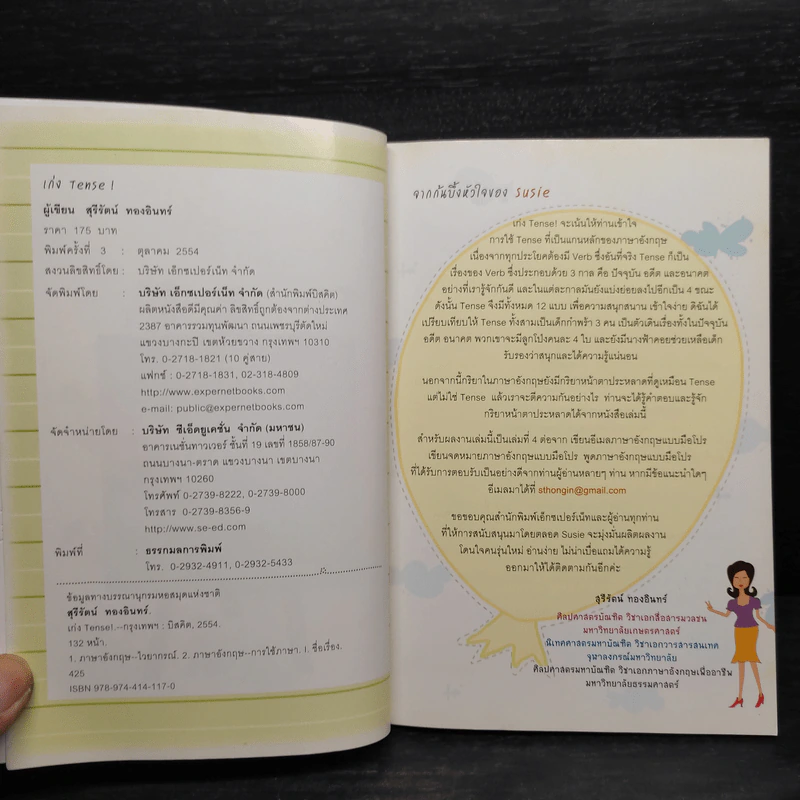 เก่ง Tense !
ผู้เขียน สุรีรัตน์ ทองอินทร์
ราคา 175 บาท
พิมพ์ครั้งที่ 3 : ตุลาคม 2554
สงวนลิขสิทธิ์โดย : บริษัท เอ็กซเปอร์เน็ท จำกัด
จัดพิมพ์โดย : บริษัท เอ็กซเปอร์เน็ท จำกัด (สำนักพิมพ์บิสคิต)
ผลิตหนังสือดีมีคุณค่า ลิขสิทธิ์ถูกต้องจากต่างประเทศ
2387 อาคารรวมทุนพัฒนา ถนนเพชรบุรีตัดใหม่
แขวงบางกะปิ เขตห้วยขวาง กรุงเทพฯ 10310
โทร. 0-2718-1821 (10 คู่สาย)
แฟกซ์ : 0-2718-1831, 02-318-4809
http://www.expernetbooks.com
e-mail: public@expernetbooks.com
จัดจำหน่ายโดย : บริษัท ซีเอ็ดยูเคชั่น จำกัด (มหาชน)
อาคารเนชั่นทาวเวอร์ ชั้นที่ 19 เลขที่ 1858/87-90
ถนนบางนา-ตราด แขวงบางนา เขตบางนา
กรุงเทพฯ 10260
โทรศัพท์ 0-2739-8222, 0-2739-8000
โทรสาร 0-2739-8356-9
http://www.se-ed.com
พิมพ์ที่ : ธรรกมลการพิมพ์
โทร. 0-2932-4911, 0-2932-5433
ข้อมูลทางบรรณานุกรมหอสมุดแห่งชาติ
สุรีรัตน์ ทองอินทร์.
เก่ง Tense!.--กรุงเทพฯ : บิสคิต, 2554.
132 หน้า.
1. ภาษาอังกฤษ--ไวยากรณ์. 2. ภาษาอังกฤษ--การใช้ภาษา. I. ชื่อเรื่อง.
425
ISBN 978-974-414-117-0
จากก้นบึ้งหัวใจของ Susie
เก่ง Tense! จะเน้นให้ท่านเข้าใจ
การใช้ Tense ที่เป็นแกนหลักของภาษาอังกฤษ
เนื่องจากทุกประโยคต้องมี Verb ซึ่งอันที่จริง Tense ก็เป็น
เรื่องของ Verb ซึ่งประกอบด้วย 3 กาล คือ ปัจจุบัน อดีต และอนาคต
อย่างที่เรารู้จักกันดี และในแต่ละกาลมันยังแบ่งย่อยลงไปอีกเป็น 4 ขณะ
ดังนั้น Tense จึงมีทั้งหมด 12 แบบ เพื่อความสนุกสนาน เข้าใจง่าย ดิฉันได้
เปรียบเทียบให้ Tense ทั้งสามเป็นเด็กกำพร้า 3 คน เป็นตัวเดินเรื่องทั้งในปัจจุบัน
อดีต อนาคต พวกเขาจะมีลูกโป่งคนละ 4 ใบ และยังมีนางฟ้าคอยช่วยเหลือเด็ก
รับรองว่าสนุกและได้ความรู้แน่นอน
นอกจากนี้กริยาในภาษาอังกฤษยังมีกริยาหน้าตาประหลาดที่ดูเหมือน Tense
แต่ไม่ใช่ Tense แล้วเราจะตีความกันอย่างไร ท่านจะได้รู้คำตอบและรู้จัก
กริยาหน้าตาประหลาดได้จากหนังสือเล่มนี้
สำหรับผลงานเล่มนี้เป็นเล่มที่ 4 ต่อจาก เขียนอีเมลภาษาอังกฤษแบบมือโปร
เขียนจดหมายภาษาอังกฤษแบบมือโปร พูดภาษาอังกฤษแบบมือโปร
ที่ได้รับการตอบรับเป็นอย่างดีจากท่านผู้อ่านหลายๆ ท่าน หากมีข้อแนะนำใดๆ
อีเมลมาได้ที่ sthongin@gmail.com
ขอขอบคุณสำนักพิมพ์เอ็กซเปอร์เน็ทและผู้อ่านทุกท่าน
ที่ให้การสนับสนุนมาโดยตลอด Susie จะมุ่งมั่นผลิตผลงาน
โดนใจคนรุ่นใหม่ อ่านง่าย ไม่น่าเบื่อแถมได้ความรู้
ออกมาให้ได้ติดตามกันอีกค่ะ
สุรีรัตน์ ทองอินทร์
ศิลปศาสตรบัณฑิต วิชาเอกสื่อสารมวลชน
มหาวิทยาลัยเกษตรศาสตร์
นิเทศศาสตรมหาบัณฑิต วิชาเอกวารสารสนเทศ
จุฬาลงกรณ์มหาวิทยาลัย
ศิลปศาสตรมหาบัณฑิต วิชาเอกภาษาอังกฤษเพื่ออาชีพ
มหาวิทยาลัยธรรมศาสตร์